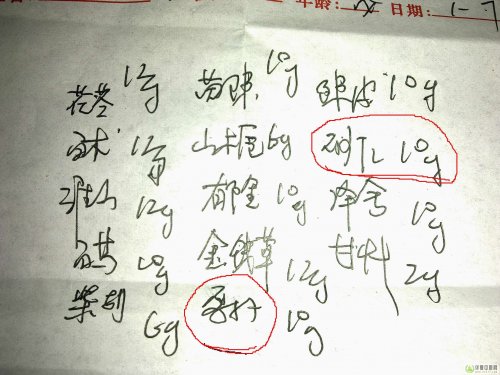 年龄: 日期: 1-7
茯苓 12g 茵陈 10g 陈皮 10g
白术 12g 山栀 6g 10g
淮山 12g 郁金 10g 10g
10g 金钱草 12g 甘草 2g
柴胡 6g 10g